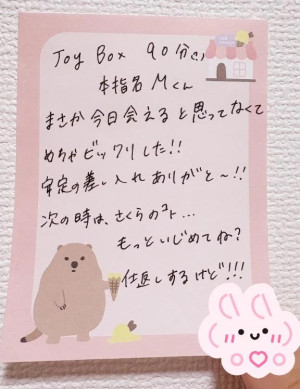 Joy Box 90分(s)
本指名 Mくん
まさか今日会えると思ってなくて
めちゃビックリした!!
安定の差し入れありがと〜!!
次の時は、さくらのコト...
もっといじめてね?
仕返しするけど!!!